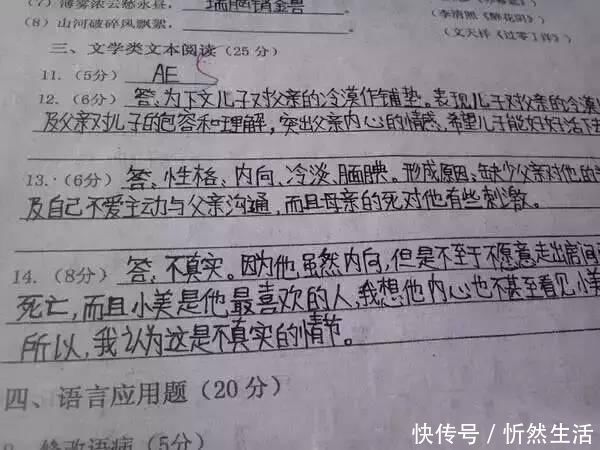 (7) 薄雾浓云愁永昼，瑞脑销金兽
(李清照《醉花阴》)
(8) 山河破碎风飘絮，
(文天祥《过零丁洋》)
三、文学类文本阅读（25分）
11.（5分） AE
12.（6分）答：为下文儿子对父亲的冷漠作铺垫。表现儿子对父亲的冷漠
及父亲对儿子的包容和理解，突出父亲内心的情感，希望儿子能好好活下去
13.（6分）答：性格：内向、冷淡、腼腆。形成原因：缺少父亲对他的
及自己不爱主动与父亲沟通，而且母亲的死对他有些刺激。
14.（8分）答：不真实。因为他虽然内向，但是不至于不愿意走出房间
死亡，而且小美是他最喜欢的人，我想他内心也不甚至看见小美
所以，我认为这是不真实的情节。
四、语言应用题（20分）
修改语病（5分）
快传号／忻然生活